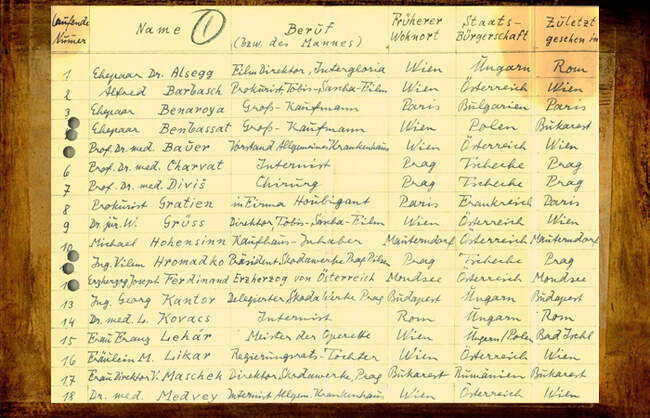 Laufende Numer Name 1 Beruf (bzw. des Mannes) Früherer Wohnort Staats-Bürgerschaft Zuletzt gesehen in
1 Ehepaar Dr. Alsegg Film Direktor, Intergloria Wien Ungarn Rom
2 Alfred Barbasch Prokurist, Tobis-Sascha-Film Wien Österreich Wien
3 Ehepaar Benaroya Groß-Kaufmann Paris Bulgarien Paris
Ehepaar Benbassat Groß-Kaufmann Wien Polen Bukarest
Prof. Dr. med. Bauer Vorstand Allgemeine Krankenhaus Wien Österreich Wien
6 Prof. Dr. med. Charvat Internist Prag Tscheche Prag
7 Prof. Dr. med. Diviš Chirurg Prag Tscheche Prag
8 Prokurist Gratien in Firma Houbigant Paris Frankreich Paris
9 Dr. jur. W. Grüss Direktor, Tobis-Sascha-Film Wien Österreich Wien
10 Michael Hohensinn Kaufhaus-Inhaber Mauterndorf Österreich Mauterndorf
Ing. Vilem Hromadko Präsident, Skodawerke, Prag, Pilsen Prag Tscheche Prag
Erzherzog Joseph Ferdinand Erzherzog von Österreich Mondsee Österreich Mondsee
13 Ing. Georg Kantor Delegierter, Skodawerke, Prag Budapest Ungarn Budapest
14 Dr. med. L. Kovacs Internist Rom Ungarn Rom
15 Frau Franz Lehár Meister der Operette Wien Ungarn/Polen Bad Ischl
16 Fräulein M. Likar Regierungsrats-Tochter Wien Österreich Wien
17 Frau Direktor V. Maschek Direktor, Skodawerke, Prag Bukarest Rumänien Bukarest
18 Dr. med. Medvey Internist Allgem. Krankenhaus Wien Österreich Wien